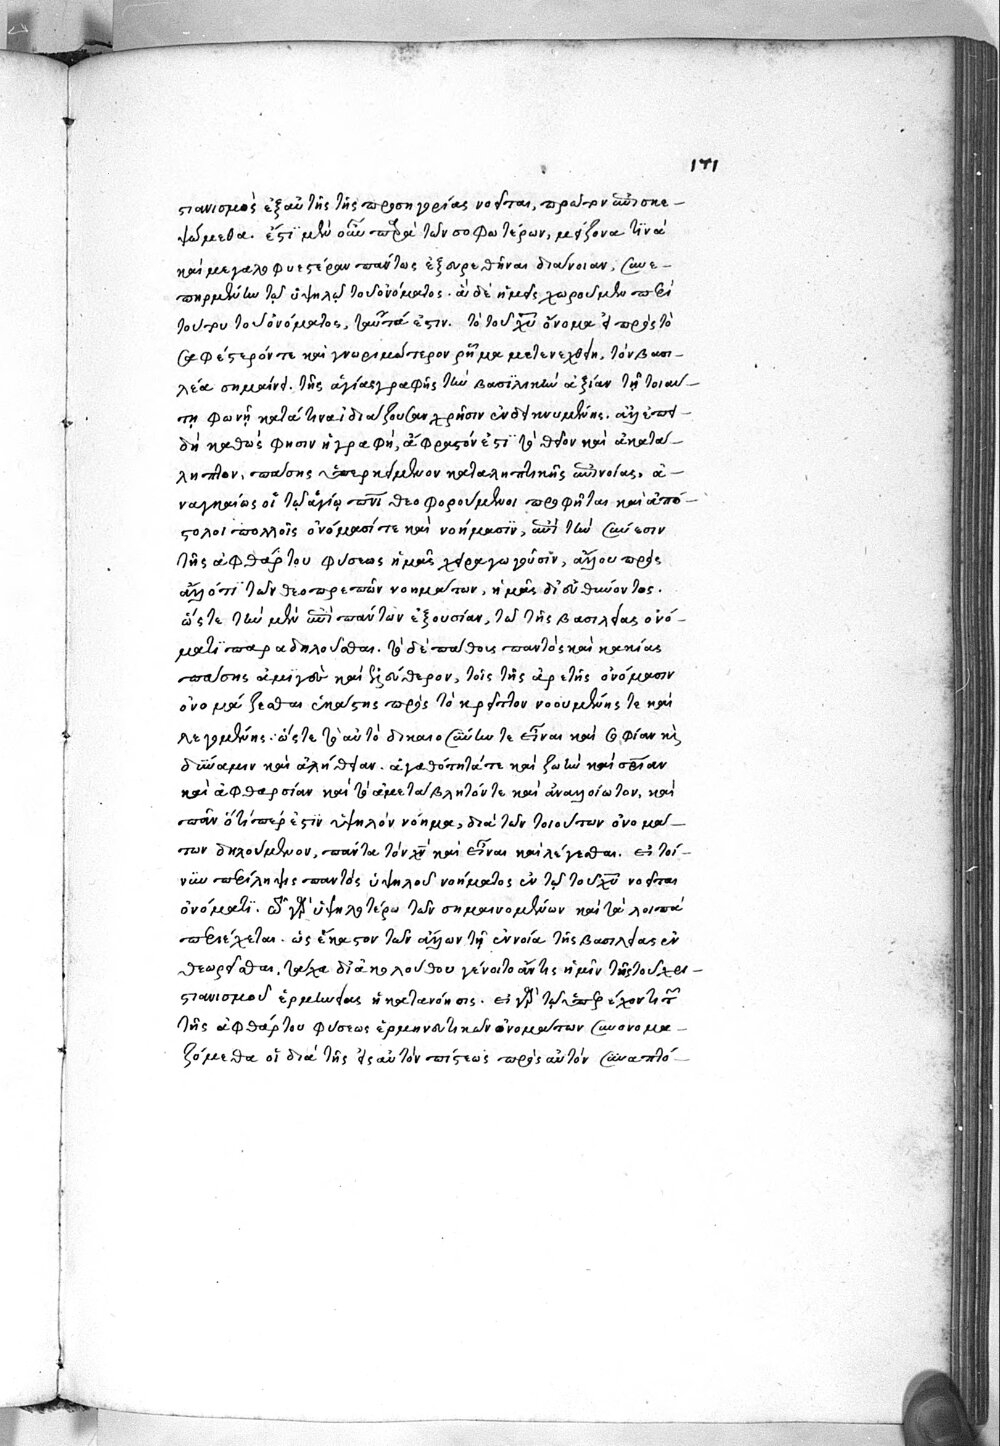 171
στιανισμὸς ἐξ αὐτῆς τῆς προσηγορίας νοεῖται, πρῶτον ἐπισκε-
ψώμεθα. ἔστι μὲν οὖν παρὰ τῶν σοφωτέρων, μείζονά τινα
καὶ μεγαλοφυεστέραν πάντως ἐξευρεθῆναι διάνοιαν, συνε-
πηρμένην τῷ ὑψηλῷ τοῦ ὀνόματος. ἃ δὲ ἡμεῖς χωροῦμεν περὶ
τούτου τοῦ ὀνόματος, ταῦτά ἐστιν. τὸ τοῦ χυ ὄνομα εἰ πρὸς τὸ
σαφέστερόν τε καὶ γνωριμώτερον ῥῆμα μετενεχθείη, τὸν βασι-
λέα σημαίνει. τῆς ἁγίας γραφῆς τὴν βασιλικὴν ἀξίαν τῇ τοιαύ-
τῃ φωνῇ κατά τινα ἰδιάζουσαν χρῆσιν ἐνδεικνυμένης. ἀλλ' ἐπει-
δὴ καθώς φησιν ἡ γραφή, ἄφραστόν ἐστι τὸ θεῖον καὶ ἀκατά-
ληπτον, πάσης ὑπερκείμενον καταληπτικῆς ἐπινοίας, ἀ-
ναγκαίως οἱ τῷ ἁγίῳ πνι θεοφορούμενοι προφῆται καὶ ἀπό-
στολοι πολλοῖς ὀνόμασί τε καὶ νοήμασιν, ἐπὶ τὴν σύνεσιν
τῆς ἀφθάρτου φύσεως ἡμᾶς χειραγωγοῦσιν, ἄλλου πρὸς
ἄλλό τι τῶν θεοπρεπῶν νοημάτων, ἡμᾶς διευθύνοντος.
ὥστε τὴν μὲν ἐπὶ πάντων ἐξουσίαν, τῷ τῆς βασιλείας ὀνό-
ματι παραδηλοῦσθαι. τὸ δὲ πάθους παντὸς καὶ κακίας
πάσης ἀμιγές καὶ ἐλεύθερον, τοῖς τῆς ἀρετῆς ὀνόμασιν
ὀνομάζεσθαι ἑκάστης πρὸς τὸ κρεῖττον νοουμένης τε καὶ
λεγομένης. ὥστε τὸ αὐτὸ δικαιοσύνην τε εἶναι καὶ σοφίαν κὶ
δύναμιν καὶ ἀλήθειαν. ἀγαθότητά τε καὶ ζωὴν καὶ σριαν
καὶ ἀφθαρσίαν καὶ τὸ ἀμετάβλητόν τε καὶ ἀναλλοίωτον, καὶ
πᾶν ὅτί πέρ ἐστιν ὑψηλὸν νόημα, διὰ τῶν τοιούτων ὀνομά-
των δηλούμενον, πάντα τὸν χν καὶ εἶναι καὶ λέγεσθαι. εἰ τοί-
νυν περίληψις παντὸς ὑψηλοῦ νοήματος ἐν τῷ τοῦ χυ νοεῖται
ὀνόματι. τῷ γὰρ ὑψηλοτέρῳ τῶν σημαινομένων καὶ τὰ λοιπὰ
περιέχεται. ὡς ἕκαστον τῶν ἄλλων τῇ ἐννοίᾳ τῆς βασιλείας ἐν
θεωρεῖσθαι, τάχα δι' ἀκολούθου γένοιτο ἄν τις ἡμῖν τῆς τοῦ χρι-
στιανισμοῦ ἑρμηνείας ἡ κατανόησις. εἰ γὰρ τῷ ὑπερέχοντι
τῆς ἀφθάρτου φύσεως ἑρμηνευτικῶν ὀνομάτων συνονομα-
ζόμεθα οἱ διὰ τῆς εἰς αὐτὸν πίστεως πρὸς αὐτὸν συναπτό-